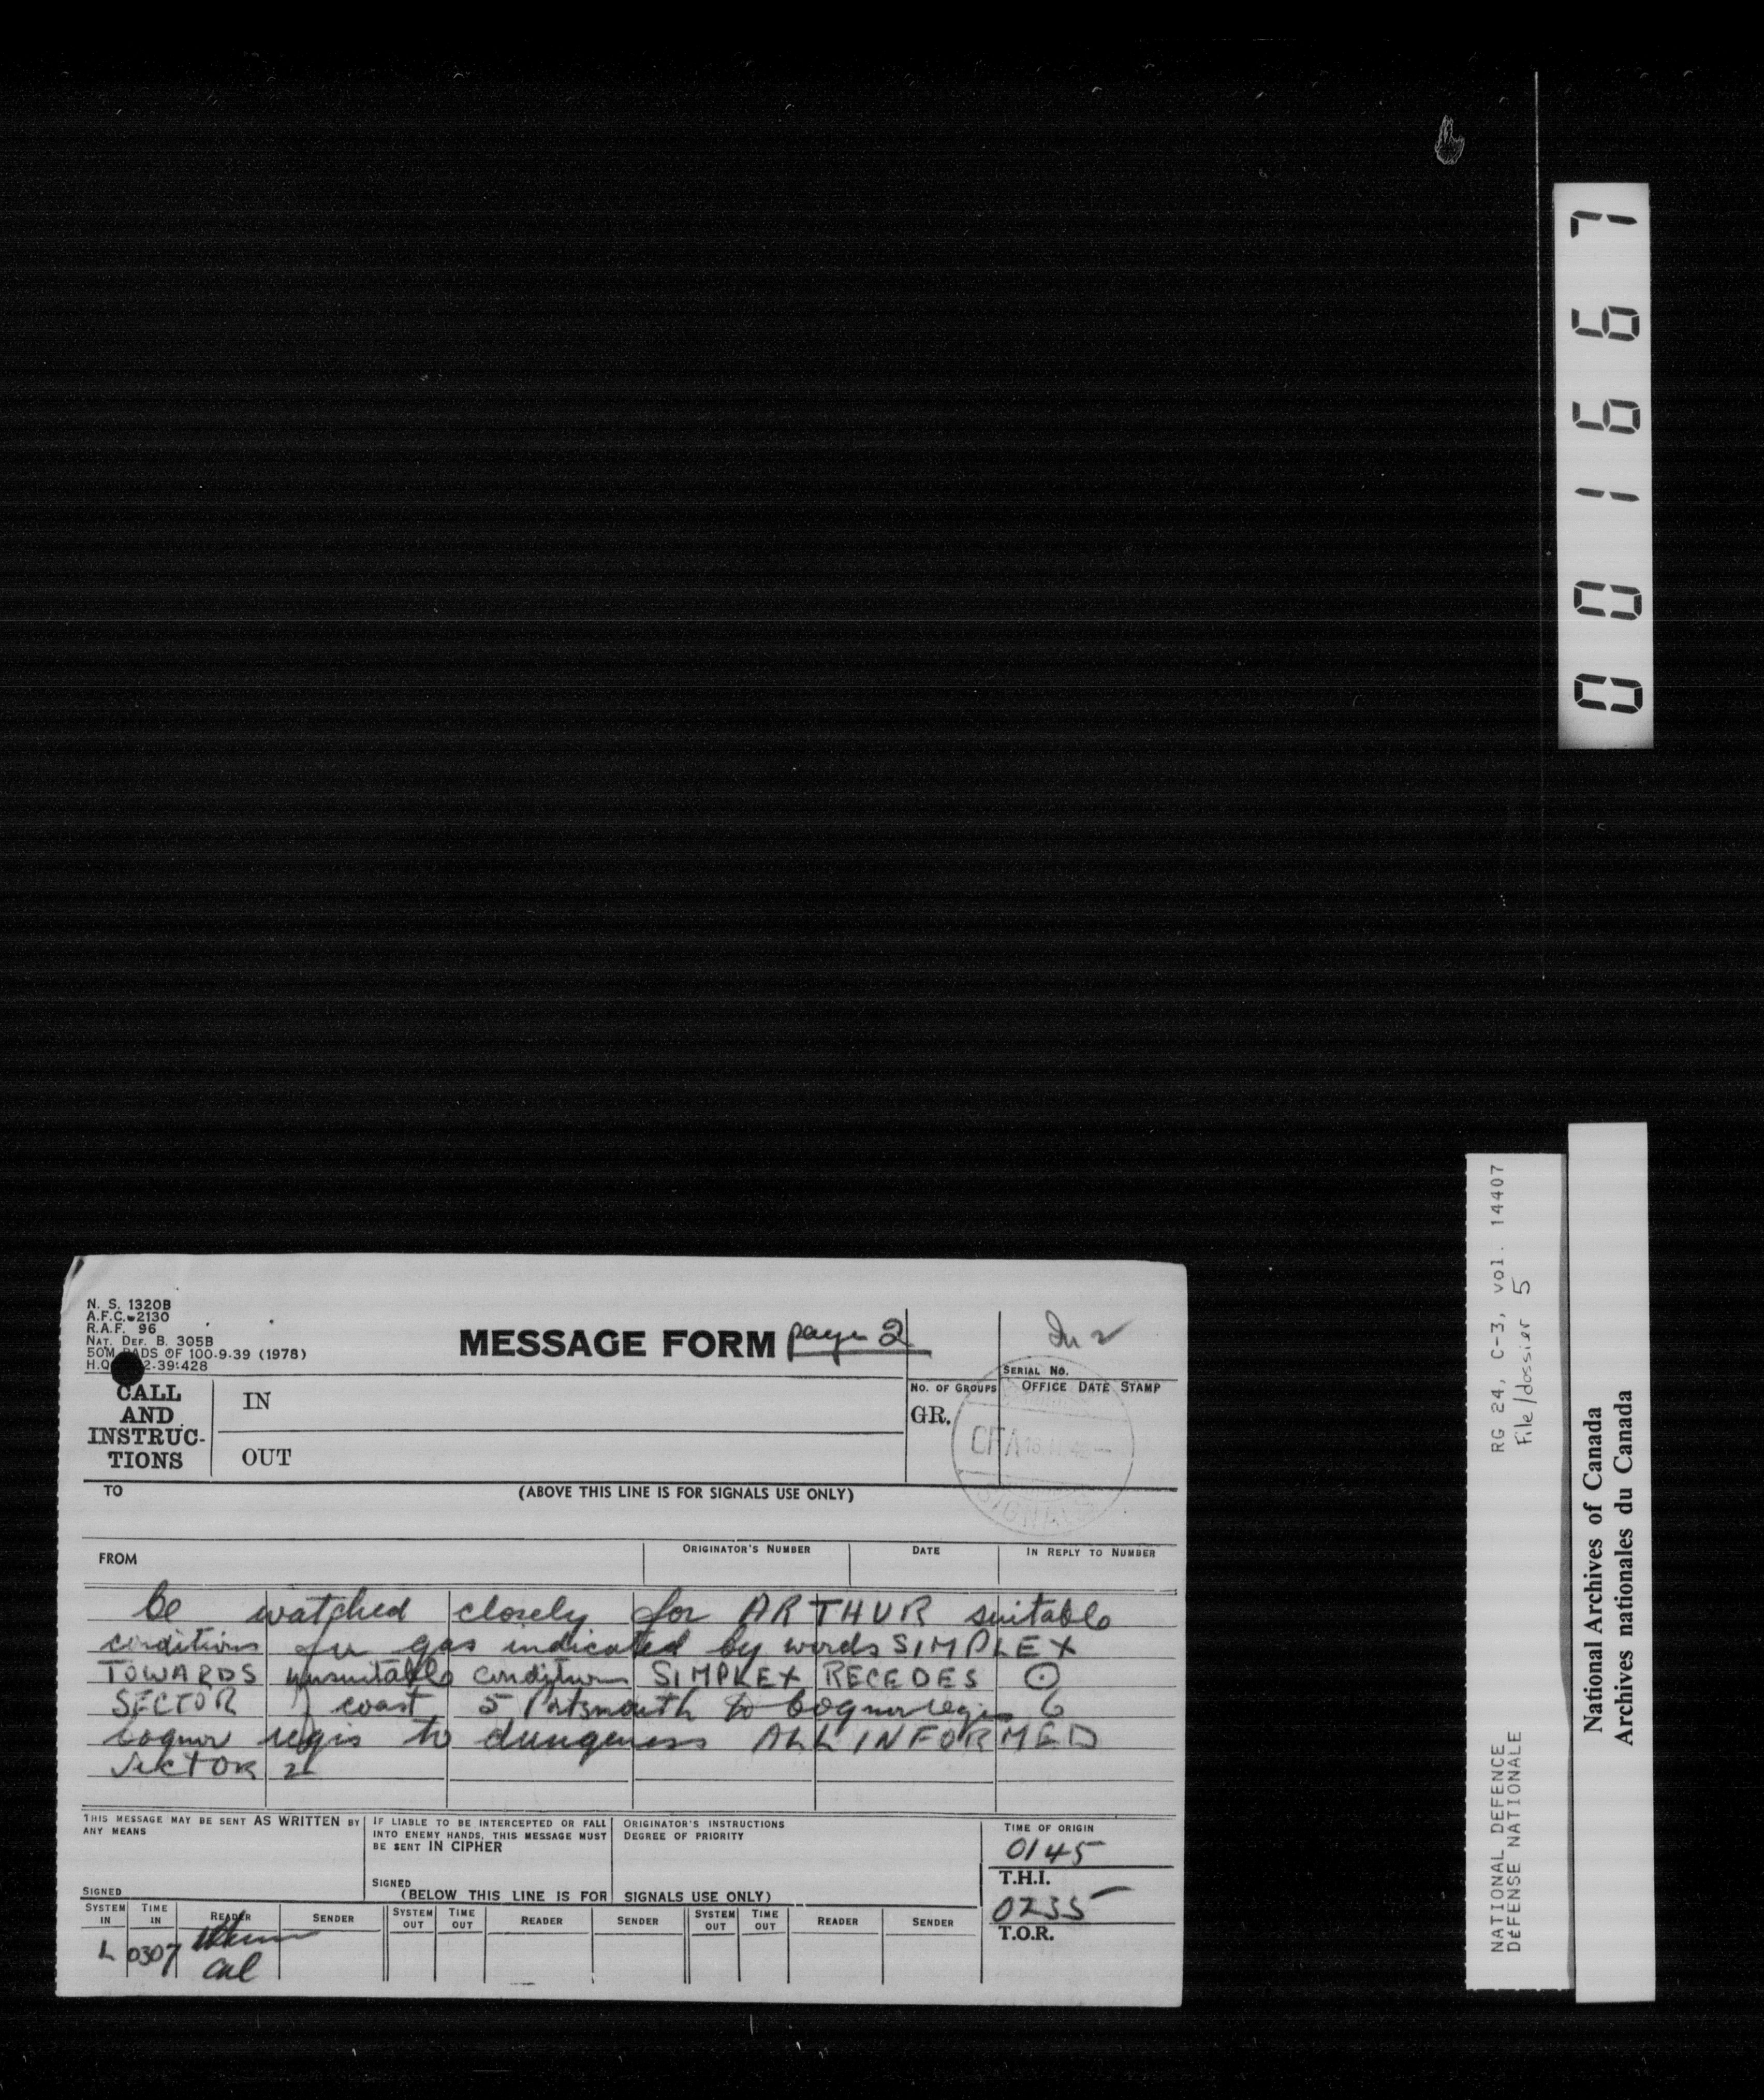 N. S. 1320B
A.F.C. 2130
R.A.F. 96
NAT. DEF. B. 305B
50M PADS OF 100-9-39 (1978)
H.Q. 2-39-428
MESSAGE FORM page 2
In 2
SERIAL NO.
CALL AND INSTRUCTIONS
IN
OUT
NO. OF GROUPS
GR.
OFFICE DATE STAMP
CFA
SIGNALS
TO
(ABOVE THIS LINE IS FOR SIGNALS USE ONLY)
FROM
ORIGINATOR'S NUMBER
DATE
IN REPLY TO NUMBER
be watched closely for ARTHUR suitable
conditions for gas indicated by words SIMPLEX
TOWARDS unsuitable conditions SIMPLEX RECEDES
SECTOR coast 5 Portsmouth to bognor regis 6
bognor regis to dungeness ALL INFORMED
SECTOR 2
THIS MESSAGE MAY BE SENT AS WRITTEN BY
ANY MEANS
SIGNED
IF LIABLE TO BE INTERCEPTED OR FALL
INTO ENEMY HANDS, THIS MESSAGE MUST
BE SENT IN CIPHER
SIGNED
ORIGINATOR'S INSTRUCTIONS
DEGREE OF PRIORITY
(BELOW THIS LINE IS FOR SIGNALS USE ONLY)
TIME OF ORIGIN
0145
T.H.I.
0235
T.O.R.
SYSTEM IN
TIME IN
READER
SENDER
SYSTEM OUT
TIME OUT
READER
SENDER
SYSTEM OUT
TIME OUT
READER
SENDER
L 0307
001667
RG 24, C-3, vol. 14407
File/dossier 5
NATIONAL DEFENCE
DÉFENSE NATIONALE
National Archives of Canada
Archives nationales du Canada